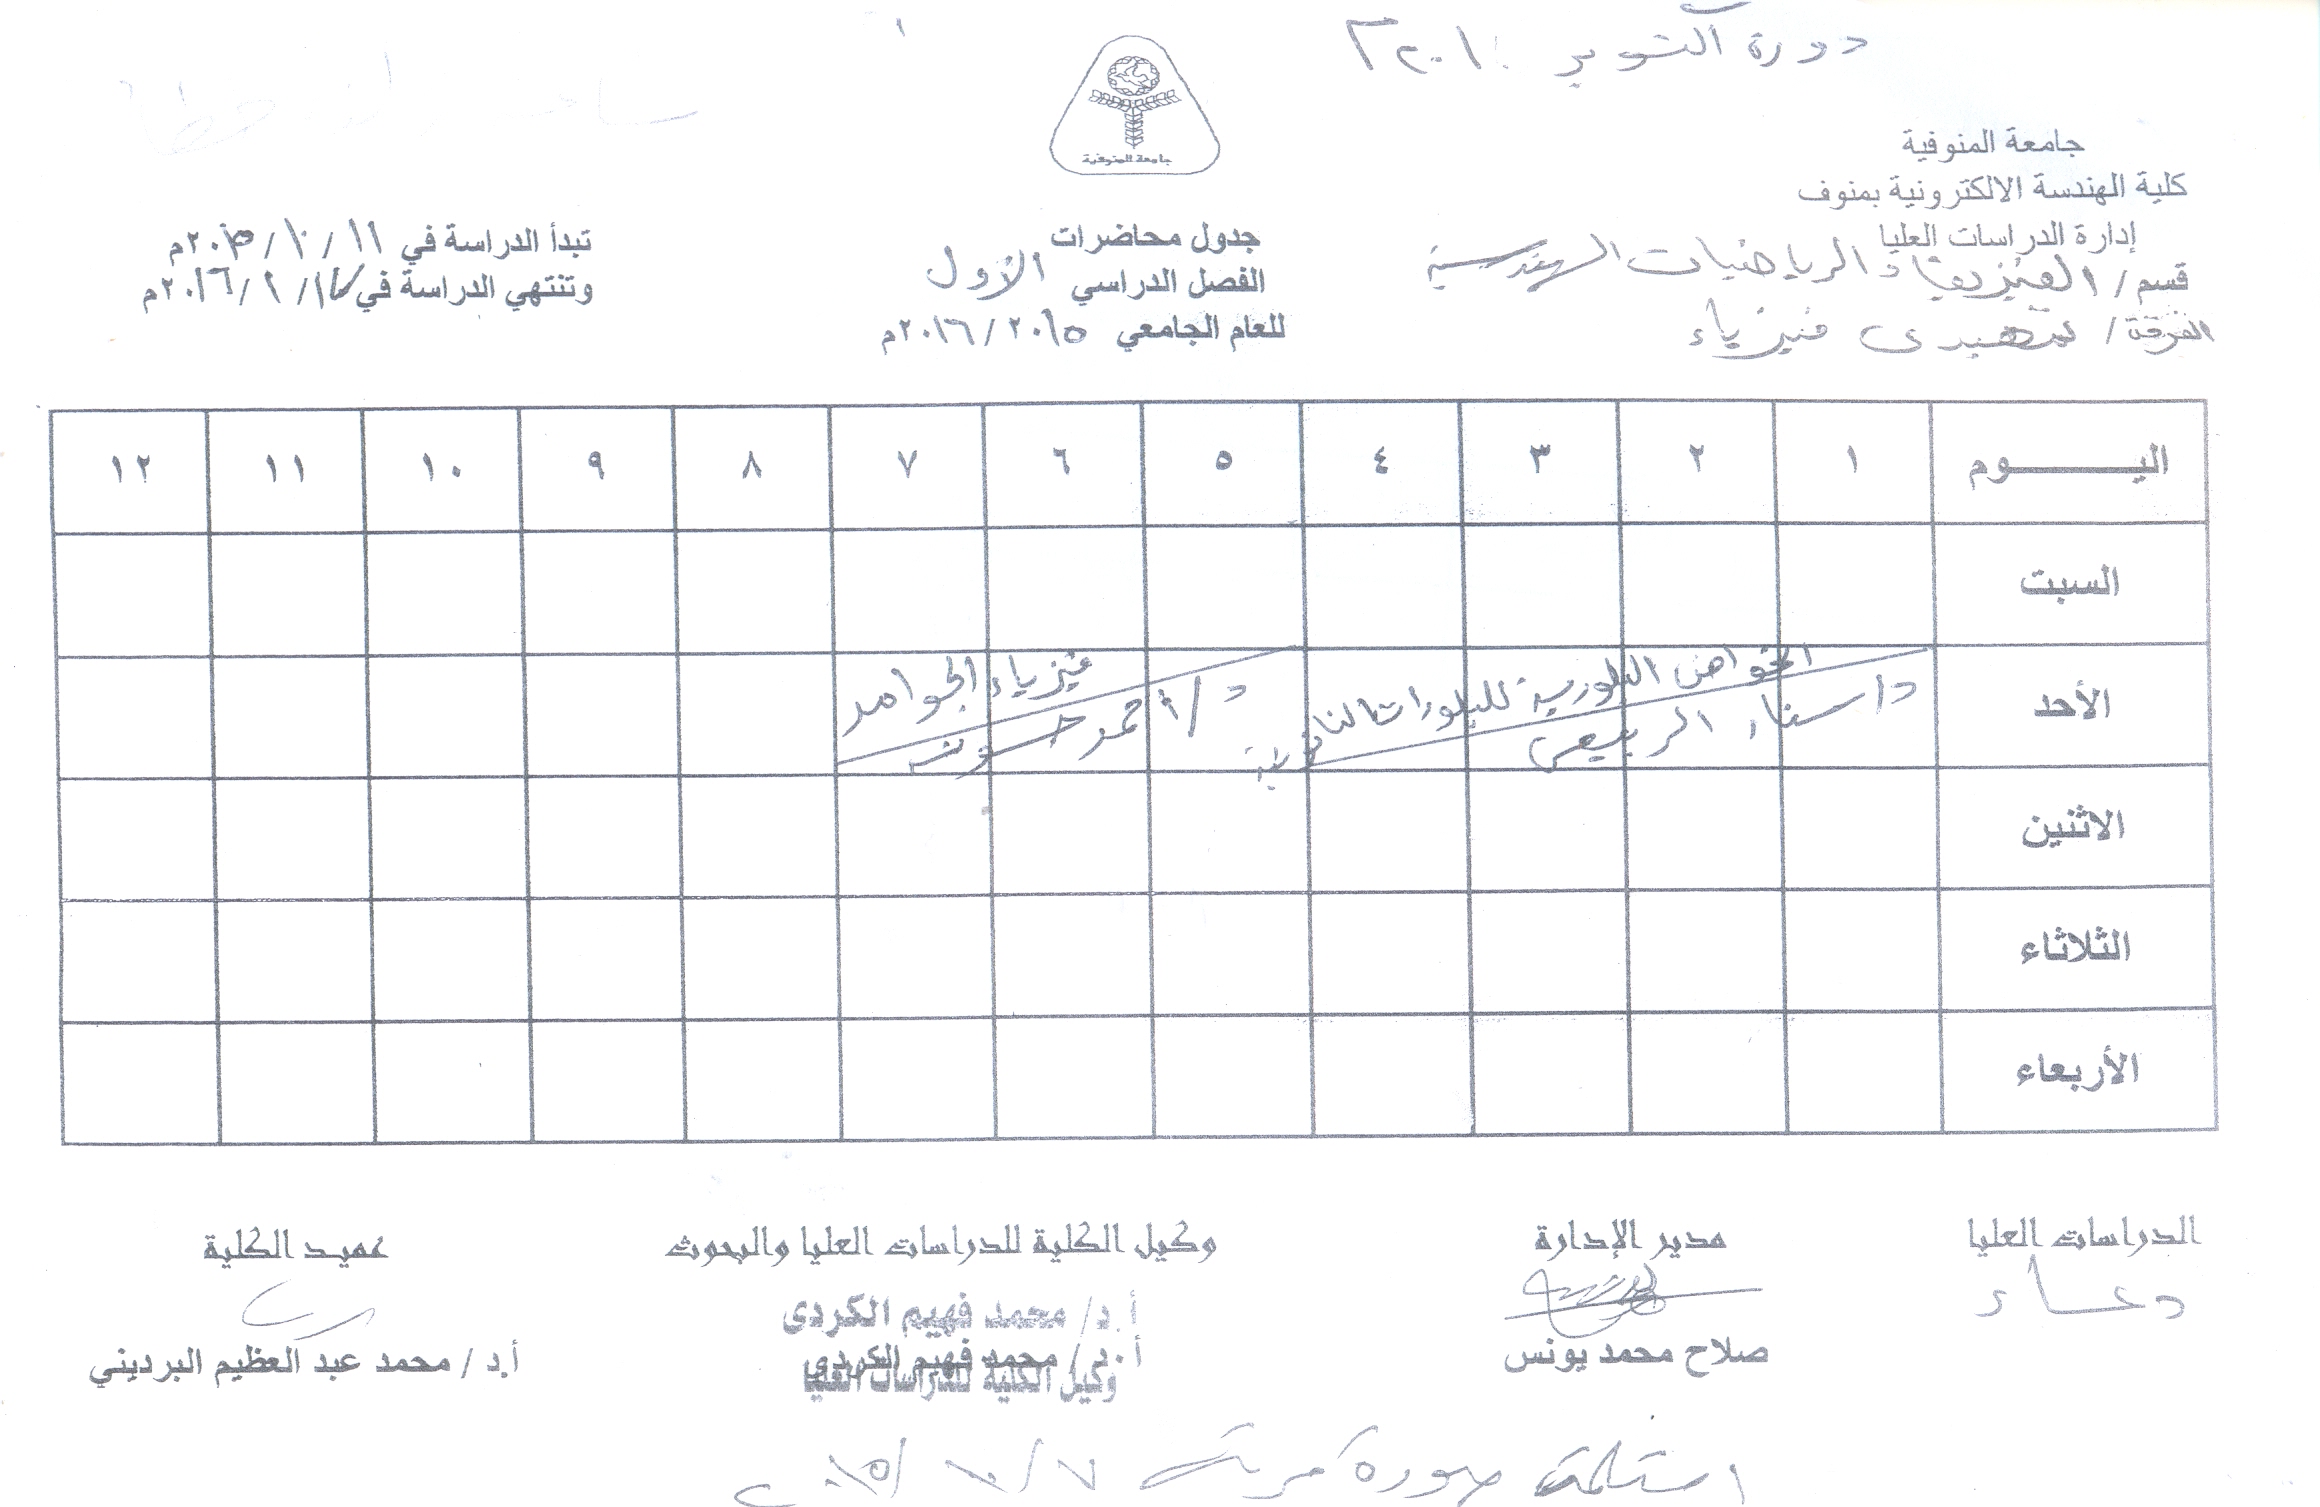 دورة أكتوبر
جامعة المنوفية
جامعة المنوفية
كلية الهندسة الالكترونية بمنوف
إدارة الدراسات العليا
قسم / الفيزيقا والرياضيات الهندسية
الفرقة / تمهيدى فيزياء
جدول محاضرات
الفصل الدراسي الأول
للعام الجامعي ٢٠١٥ / ٢٠١٦م
تبدأ الدراسة في ١١ / ١٠ /
وتنتهي الدراسة في / ١ / ٢٠١٦م
اليـــــوم ١ ٢ ٣ ٤ ٥ ٦ ٧ ٨ ٩ ١٠ ١١ ١٢
السبت
الأحد
الخواص البلورية للبلورات
د/ سناء الربيعى
فيزياء الجوامد
د/ أحمد
الاثنين
الثلاثاء
الأربعاء
الدراسات العليا
دعاء
مدير الإدارة
صلاح محمد يونس
وكيل الكلية للدراسات العليا والبحوث
أ.د/ محمد فهيم الكردى
أ.د/ محمد فهيم الكردي
وكيل الكلية للدراسات العليا
عميد الكلية
أ.د / محمد عبد العظيم البرديني
استلمت صورة